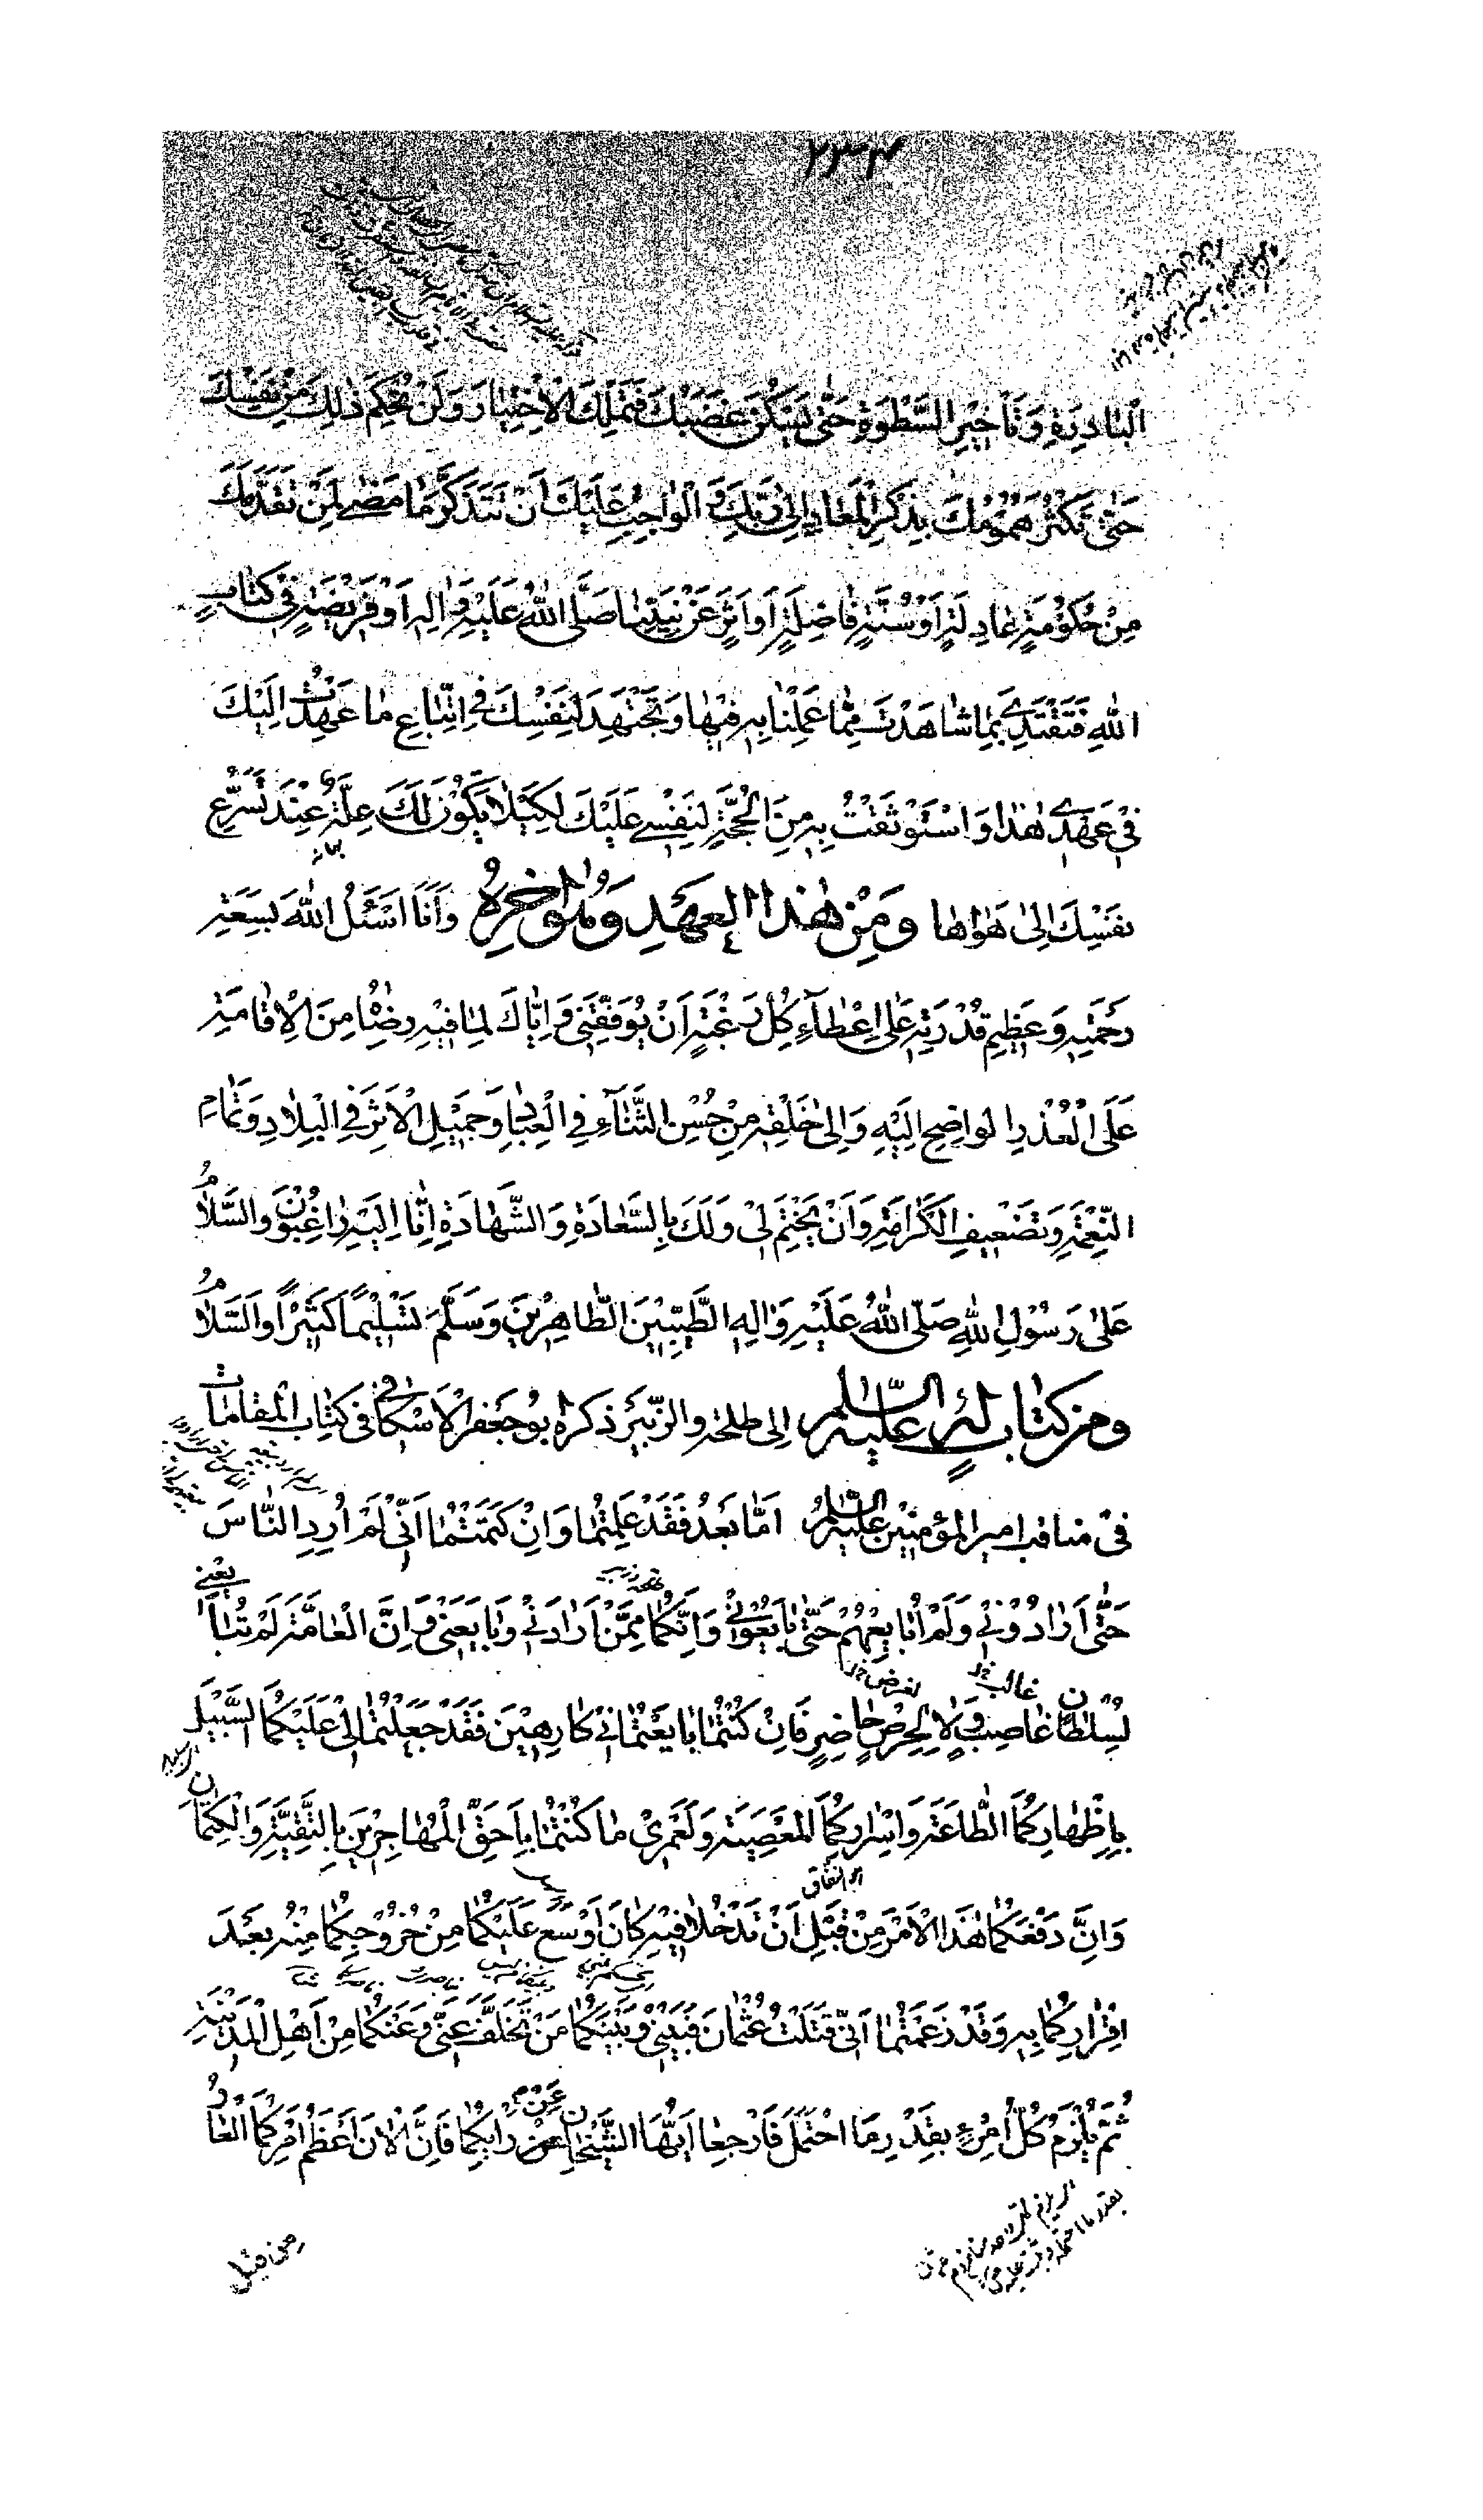 ٢٣٤
الْبَادِرَةِ وَتَأْخِيرِ السَّطْوَةِ حَتّٰى يَسْكُنَ غَضَبُكَ فَتَمْلِكَ الْاِخْتِيٰارَ وَلَنْ تُحْكِمَ ذٰلِكَ مِنْ نَفْسِكَ
حَتّٰى تُكْثِرَ هُمُوْمَكَ بِذِكْرِ الْمَعٰادِ اِلىٰ رَبِّكَ وَ الْوٰاجِبُ عَلَيْكَ اَنْ تَتَذَكَّرَ مٰا مَضٰى لِمَنْ تَقَدَّمَكَ
مِنْ حُكُوْمَةٍ عٰادِلَةٍ اَوْ سُنَّةٍ فٰاضِلَةٍ اَوْ اَثَرٍ عَنْ نَبِيِّنٰا صَلَّى اللهُ عَلَيْهِ وَاٰلِهِ اَوْ فَرِيْضَةٍ فِيْ كِتٰابِ
اللهِ فَتَقْتَدِيَ بِمٰا شٰاهَدْتَ مِمّٰا عَمِلْنٰا بِهِ فِيْهٰا وَتَجْتَهِدَ لِنَفْسِكَ فِي اتِّبٰاعِ مٰا عَهِدْتُ اِلَيْكَ
فِيْ عَهْدِيْ هٰذٰا وَاسْتَوْثَقْتُ بِهِ مِنَ الْحُجَّةِ لِنَفْسِيْ عَلَيْكَ لِكَيْلٰا يَكُوْنَ لَكَ عِلَّةٌ عِنْدَ تَسَرُّعِ
نَفْسِكَ اِلىٰ هَوٰاهٰا وَمِنْ هٰذَا الْعَهْدِ وَهُوَ اٰخِرُهُ وَاَنَا اَسْئَلُ اللهَ بِسَعَةِ
رَحْمَتِهِ وَعَظِيْمِ قُدْرَتِهِ عَلىٰ اِعْطٰاءِ كُلِّ رَغْبَةٍ اَنْ يُوَفِّقَنِيْ وَاِيّٰاكَ لِمٰا فِيْهِ رِضٰاهُ مِنَ الْاِقٰامَةِ
عَلَى الْعُذْرِ الْوٰاضِحِ اِلَيْهِ وَاِلىٰ خَلْقِهِ مِنْ حُسْنِ الثَّنٰاءِ فِي الْعِبٰادِ وَجَمِيْلِ الْاَثَرِ فِي الْبِلٰادِ وَتَمٰامِ
النِّعْمَةِ وَتَضْعِيْفِ الْكَرٰامَةِ وَاَنْ يَخْتِمَ لِيْ وَلَكَ بِالسَّعٰادَةِ وَالشَّهٰادَةِ اِنّٰا اِلَيْهِ رٰاغِبُوْنَ وَالسَّلٰامُ
عَلىٰ رَسُوْلِ اللهِ صَلَّى اللهُ عَلَيْهِ وَاٰلِهِ الطَّيِّبِيْنَ الطّٰاهِرِيْنَ وَسَلَّمَ تَسْلِيْمًا كَثِيْرًا وَالسَّلٰامُ
ومن كتاب له عليه السّلام الى طلحة والزّبير ذكره ابو جعفر الاسكافي في كتاب المقامات
فى مناقب امير المؤمنين عليه السّلام اَمّٰا بَعْدُ فَقَدْ عَلِمْتُمٰا وَاِنْ كَتَمْتُمٰا اَنِّيْ لَمْ اُرِدِ النّٰاسَ
حَتّٰى اَرٰادُوْنِيْ وَلَمْ اُبٰايِعْهُمْ حَتّٰى بٰايَعُوْنِيْ وَاِنَّكُمٰا مِمَّنْ اَرٰادَنِيْ وَبٰايَعَنِيْ وَاِنَّ الْعٰامَّةَ لَمْ تُبٰايِعْنِيْ
لِسُلْطٰانٍ غٰاصِبٍ وَلٰا لِحِرْصٍ حٰاضِرٍ فَاِنْ كُنْتُمٰا بٰايَعْتُمٰانِيْ كٰارِهِيْنَ فَقَدْ جَعَلْتُمٰا لِيْ عَلَيْكُمَا السَّبِيْلَ
بِاِظْهٰارِكُمَا الطّٰاعَةَ وَاِسْرٰارِكُمَا الْمَعْصِيَةَ وَلَعَمْرِيْ مٰا كُنْتُمٰا بِاَحَقِّ الْمُهٰاجِرِيْنَ بِالتَّقِيَّةِ وَالْكِتْمٰانِ
وَاِنَّ دَفْعَكُمٰا هٰذَا الْاَمْرَ مِنْ قَبْلِ اَنْ تَدْخُلٰا فِيْهِ كٰانَ اَوْسَعَ عَلَيْكُمٰا مِنْ خُرُوْجِكُمٰا مِنْهُ بَعْدَ
اِقْرٰارِكُمٰا بِهِ وَقَدْ زَعَمْتُمٰا اَنِّيْ قَتَلْتُ عُثْمٰانَ فَبَيْنِيْ وَبَيْنَكُمٰا مَنْ تَخَلَّفَ عَنِّيْ وَعَنْكُمٰا مِنْ اَهْلِ الْمَدِيْنَةِ
ثُمَّ يُلْزَمُ كُلُّ امْرِئٍ بِقَدْرِ مَا احْتَمَلَ فَارْجِعٰا اَيُّهَا الشَّيْخٰانِ عَنْ رَأْيِكُمٰا فَاِنَّ الْاٰنَ اَعْظَمُ اَمْرِكُمَا الْعٰارُ
من قبل